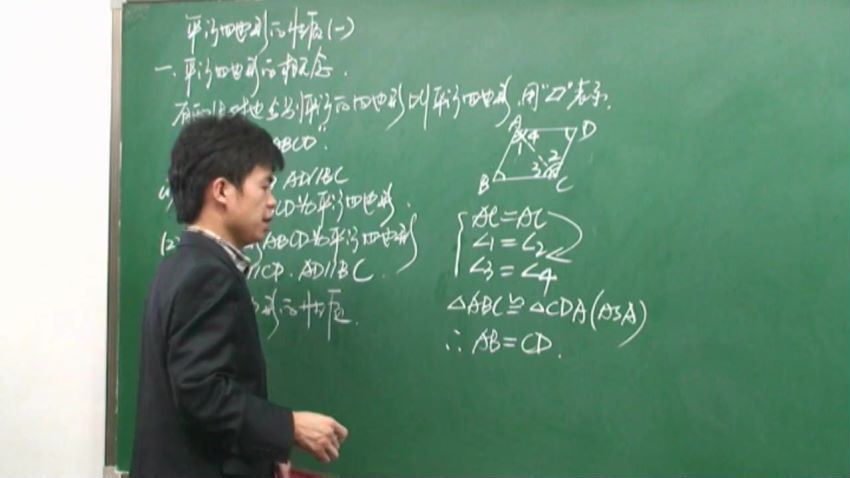 平行四边形的性质(一)
一. 平行四边形的概念.
有两组对边分别平行的四边形叫平行四边形.用"▱"表示.
ABCD"
AD∥BC
CD为平行四边形.
(2) ABCD为平行四边形
∥CD. AD∥BC
形的性质.
A 4 D
1 2
3
B C
AC=AC
∠1=∠2
∠3=∠4
△ABC≌△CDA(ASA)
∴ AB=CD.